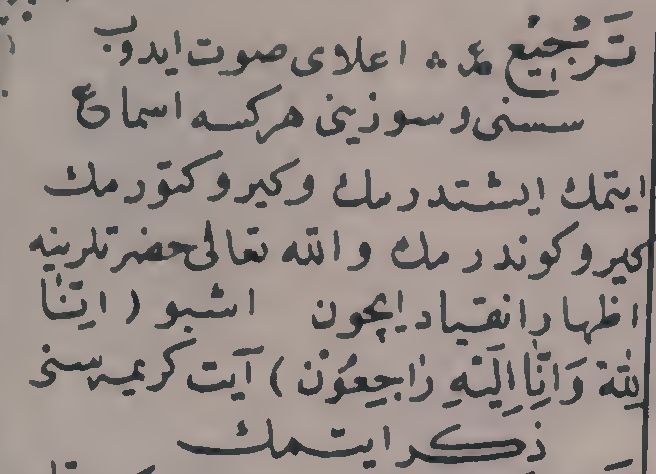 تَرْجِيْع ع ؞ اعلای صوت ایدوب
سسنی و سوزینی هرکسه اسماع
ایتمك ایشتدرمك و کیرو کتورمك
کیرو کوندرمك و الله تعالی حضرتلرینه
اظهار انقیاد ایچون اشبو ( اِنَّا
لِلّٰهِ وَاِنَّا اِلَيْهِ رَاجِعُوْن ) آیت کریمه سنی
ذکر ایتمك